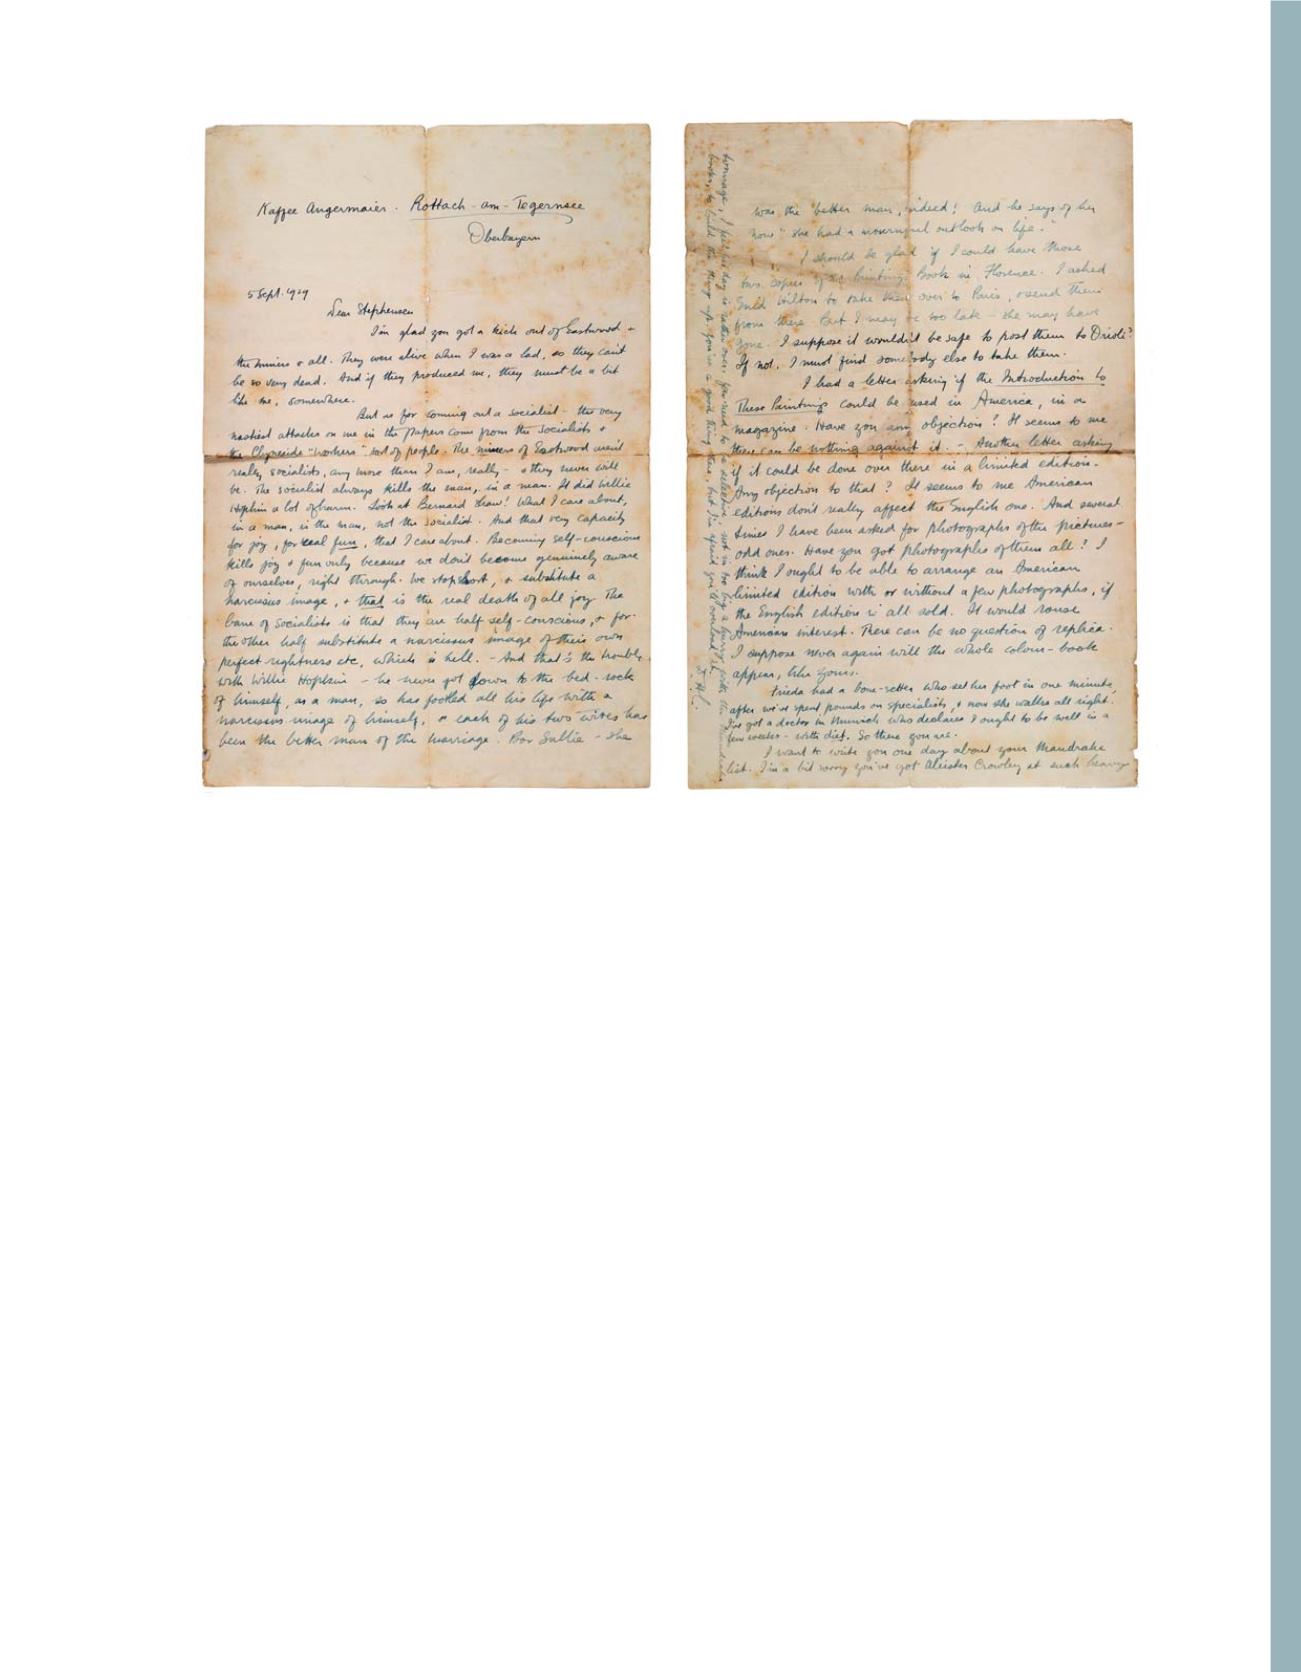 Kaffee Angermaier. Rottach-am-Tegernsee
Oberbayern
5 Sept. 1929
Dear Stephensen
I'm glad you got a kick out of Eastwood +
the miners + all. They were alive when I was a lad, so they can't
be so very dead. And if they produced me, they must be a bit
like me, somewhere.
But as for coming out a socialist - the very
nastiest attacks on me in the papers come from the Socialists +
the Clydeside "workers" sort of people. The miners of Eastwood aren't
really socialists, any more than I am, really - + they never will
be. The socialist always kills the man, in a man. It did Willie
Hopkin a lot of harm. Look at Bernard Shaw! What I care about,
in a man, is the man, not the socialist. And that very capacity
for joy, for real fun, that I care about. Becoming self-conscious
kills joy + fun only because we don't become genuinely aware
of ourselves, right through. We stop short, + substitute a
narcissus image, + that is the real death of all joy. The
bane of socialists is that they are half self-conscious, + for
the other half substitute a narcissus image of their own
perfect rightness etc, which is hell. - And that's the trouble
with Willie Hopkin - he never got down to the bed-rock
of himself, as a man, so has footled all his life with a
narcissus image of himself, + each of his two wives has
been the better man of the marriage. Poor Sallie - she
was the better man, indeed! And he says of her
now "she had a mournful outlook on life."
I should be glad if I could have those
two copies of the Painting Book in Florence. I asked
Enid Hilton to take them over to Paris, + send them
from there. But I may be too late - she may have
gone. I suppose it wouldn't be safe to post them to Orioli?
If not, I must find somebody else to take them.
I had a letter asking if the Introduction to
These Paintings could be used in America, in a
magazine. Have you any objection? It seems to me
there can be nothing against it. - Another letter asking
if it could be done over there in a limited edition.
Any objection to that? It seems to me American
editions don't really affect the English one. And several
times I have been asked for photographs of the pictures -
odd ones. Have you got photographs of them all? I
think I ought to be able to arrange an American
limited edition with or without a few photographs, if
the English edition is all sold. It would rouse
American interest. There can be no question of replica.
I suppose never again will the whole colour-book
appear, like yours.
Frieda had a bone-setter who set her foot in one minute,
after we've spent pounds on specialists, + now she walks all right.
I've got a doctor in Munich who declares I ought to be well in a
few weeks - with diet. So there you are.
I want to write you one day about your Mandrake
list. I'm a bit sorry you've got Aleister Crowley at such heavy
tonnage, I feel his day is rather over. You need to be selective, not in too big a hurry with the Mandrake
books, to build the thing up. You're a good thing there, but I'm afraid you'll overload it.
D.H.L.